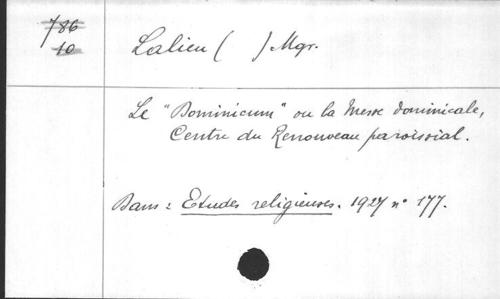 786
10
Lalieu ( ) Mgr.
Le "Dominicum" ou la Messe dominicale,
Centre du Renouveau paroissial.
Dans : Etudes religieuses. 1927 n° 177.